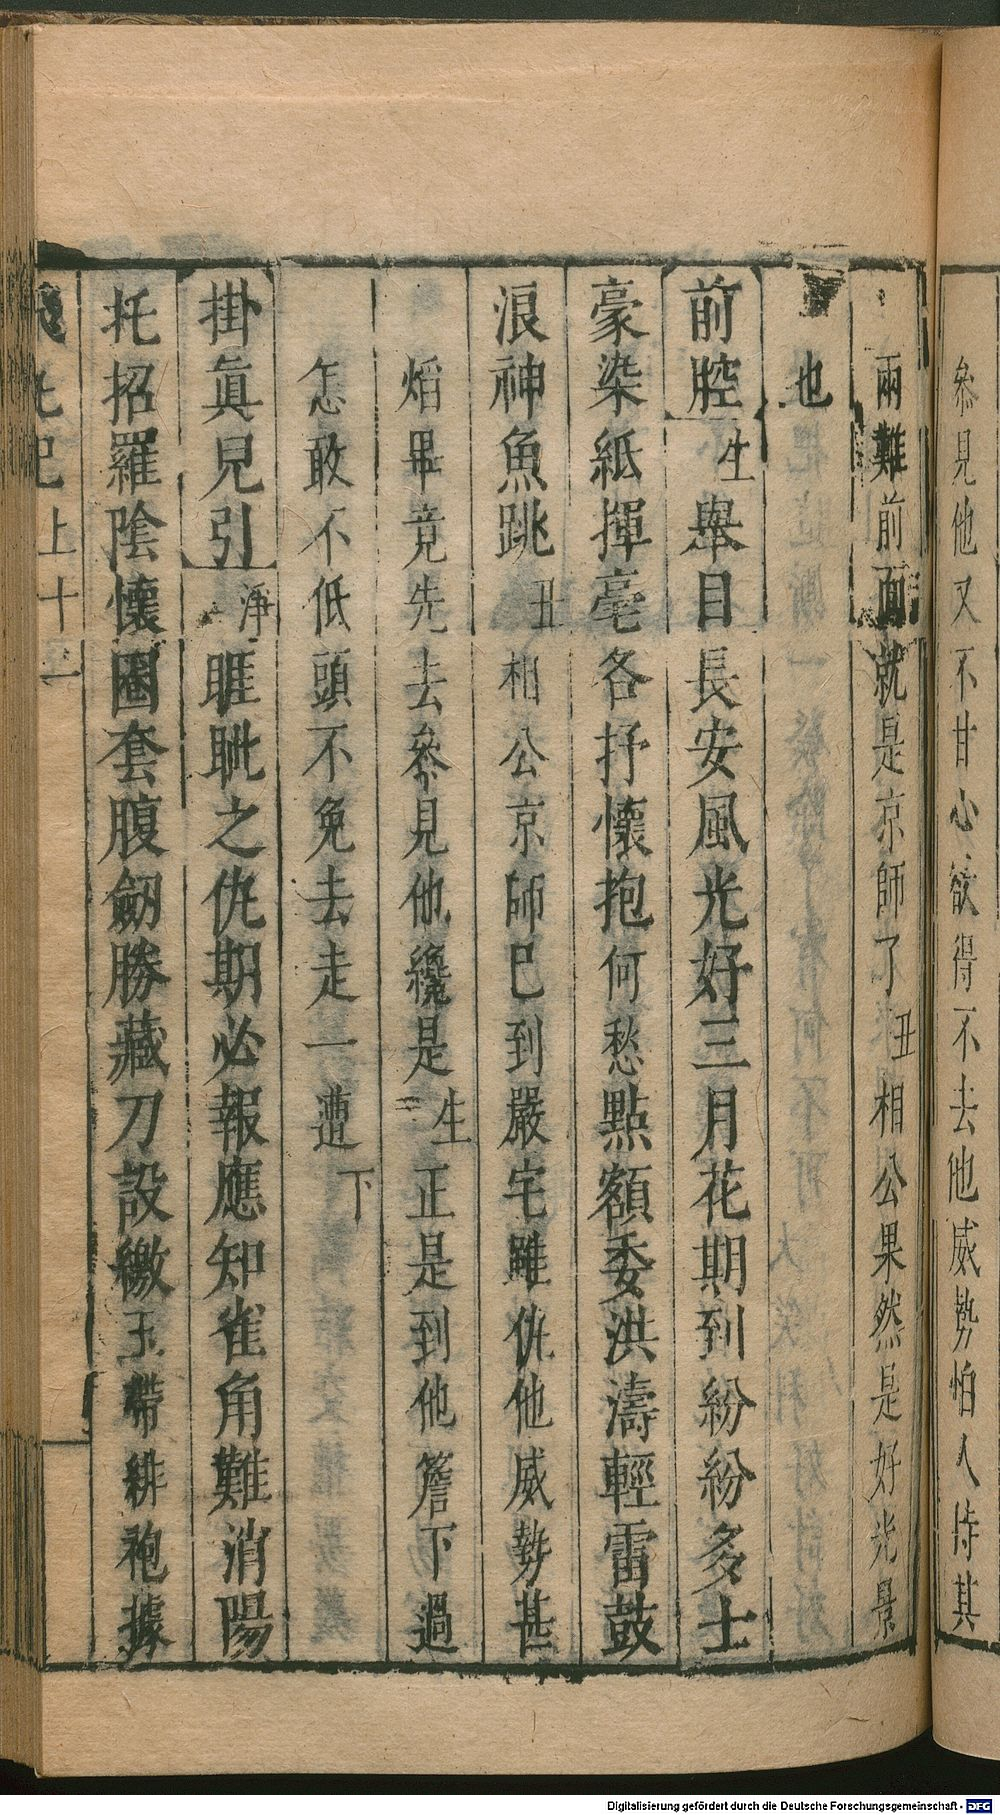 叅見他又不甘心欲得不去他威勢怕人待其
兩難前面就是京師了丑相公果然是好光景
也
前腔生舉目長安風光好三月花期到紛紛多士
豪染紙揮毫各抒懷抱何愁點額委洪濤輕雷鼓
浪神魚跳丑相公京師巳到嚴宅雖仇他威勢甚
熖畢竟先去叅見他纔是生正是到他簷下過
怎敢不低頭不免去走一遭下
掛眞見引淨睚眦之仇期必報應知雀角難消陽
托招羅陰懷圈套腹劒勝藏刀設繳玉帶緋袍據
記上十
Digitalisierung gefördert durch die Deutsche Forschungsgemeinschaft - DFG